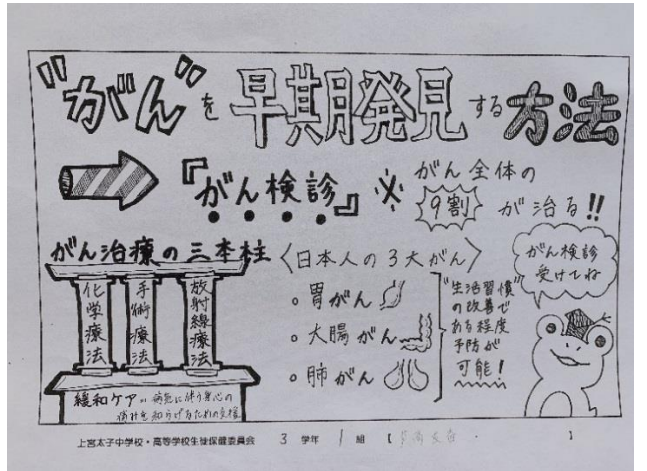 "がん"を早期発見する方法
『がん検診』※がん全体の
9割が治る!!
がん治療の三本柱
化学療法
手術療法
放射線療法
緩和ケア… 病気に伴う身心の
痛みを和らげるための支援
〈日本人の3大がん〉
。胃がん
。大腸がん
。肺がん
"生活習慣"
の改善で
ある程度
予防が
可能!
がん検診
受けてね
上宮太子中学校・高等学校生徒保健委員会 3 学年 1 組 【 】